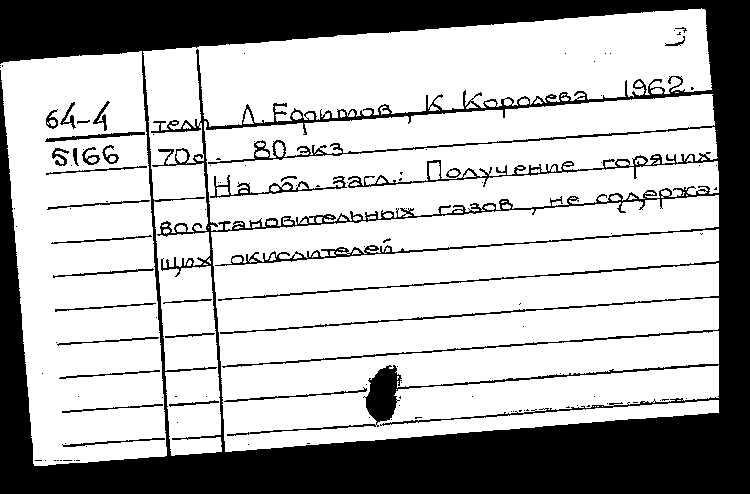 3
64-4 тели Л. Ефимов, К. Королева. 1962.
5166 70с. 80 экз.
На обл. загл.: Получение горячих
восстановительных газов, не содержа-
щих окислителей.